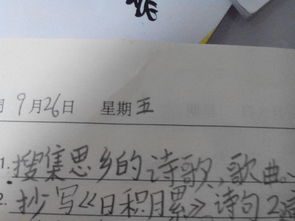 月 9月26日 星期 五
1.搜集思乡的诗歌、歌曲、
2.抄写《日积月累》诗句2